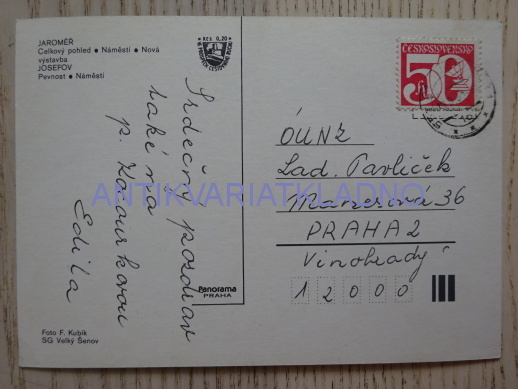 JAROMĚŘ
Celkový pohled • Náměstí • Nová
výstavba
JOSEFOV
Pevnost • Náměstí
Kčs 0,20
Srdečný pozdrav
také na
p. Kacourkovou
Edita
Foto F. Kubík
SG Velký Šenov
Panorama
PRAHA
ČESKOSLOVENSKO
50
OÚNZ
Lad. Pavlíček
Manesova 36
PRAHA 2
Vinohrady
12000
ANTIKVARIATKLADNO